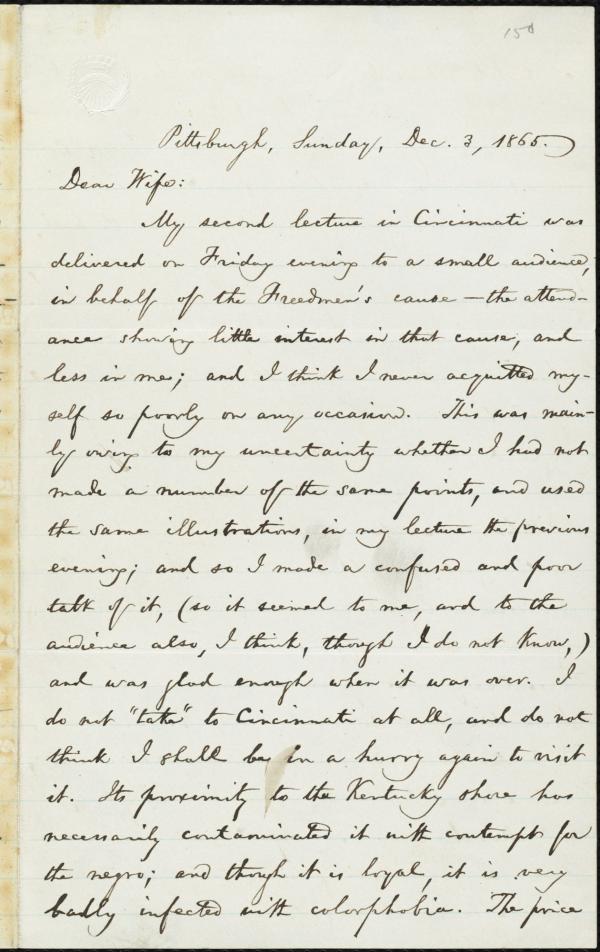 150
Pittsburgh, Sunday, Dec. 3, 1865.
Dear Wife:
My second lecture in Cincinnati was
delivered on Friday evening to a small audience,
in behalf of the Freedmen's cause — the attend-
ance showing little interest in that cause, and
less in me; and I think I never acquitted my-
self so poorly on any occasion. This was main-
ly owing to my uncertainty whether I had not
made a number of the same points, and used
the same illustrations, in my lecture the previous
evening; and so I made a confused and poor
talk of it, (so it seemed to me, and to the
audience also, I think, though I do not know,)
and was glad enough when it was over. I
do not "take" to Cincinnati at all, and do not
think I shall be in a hurry again to visit
it. Its proximity to the Kentucky shore has
necessarily contaminated it with contempt for
the negro; and though it is loyal, it is very
badly infected with colorphobia. The price